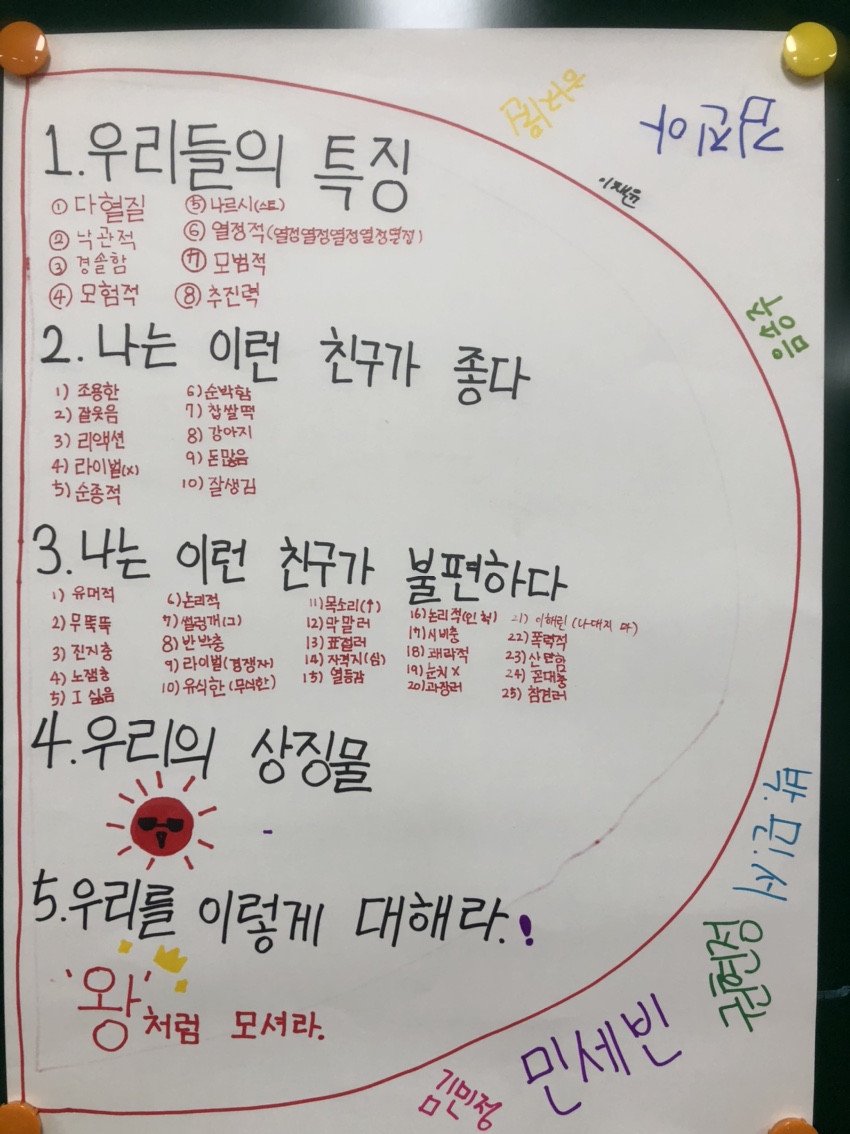 김진아
이재윤
1. 우리들의 특징
① 다혈질
② 낙관적
③ 경솔함
④ 모험적
⑤ 나르시(스트)
⑥ 열정적(열정열정열정열정열정)
⑦ 모범적
⑧ 추진력
임승주
2. 나는 이런 친구가 좋다
1) 조용한
2) 잘웃음
3) 리액션
4) 라이벌(x)
5) 순종적
6) 순박함
7) 찹쌀떡
8) 강아지
9) 돈많음
10) 잘생김
3. 나는 이런 친구가 불편하다
1) 유머적
2) 무뚝뚝
3) 진지충
4) 노잼충
5) I 싫음
6) 논리적
7) 썰렁개(그)
8) 반박충
9) 라이벌(경쟁자)
10) 유식한(무식한)
11) 목소리(↑)
12) 막말러
13) 표절러
14) 자격지(심)
15) 열등감
16) 논리적(인 척)
17) 시비충
18) 쾌락적
19) 눈치 X
20) 과장러
21) 이해린 (나대지 마)
22) 폭력적
23) 산만함
24) 꼰대충
25) 참견러
4. 우리의 상징물
5. 우리를 이렇게 대해라.!
'왕'처럼 모셔라.
권현정
민세빈
김민정